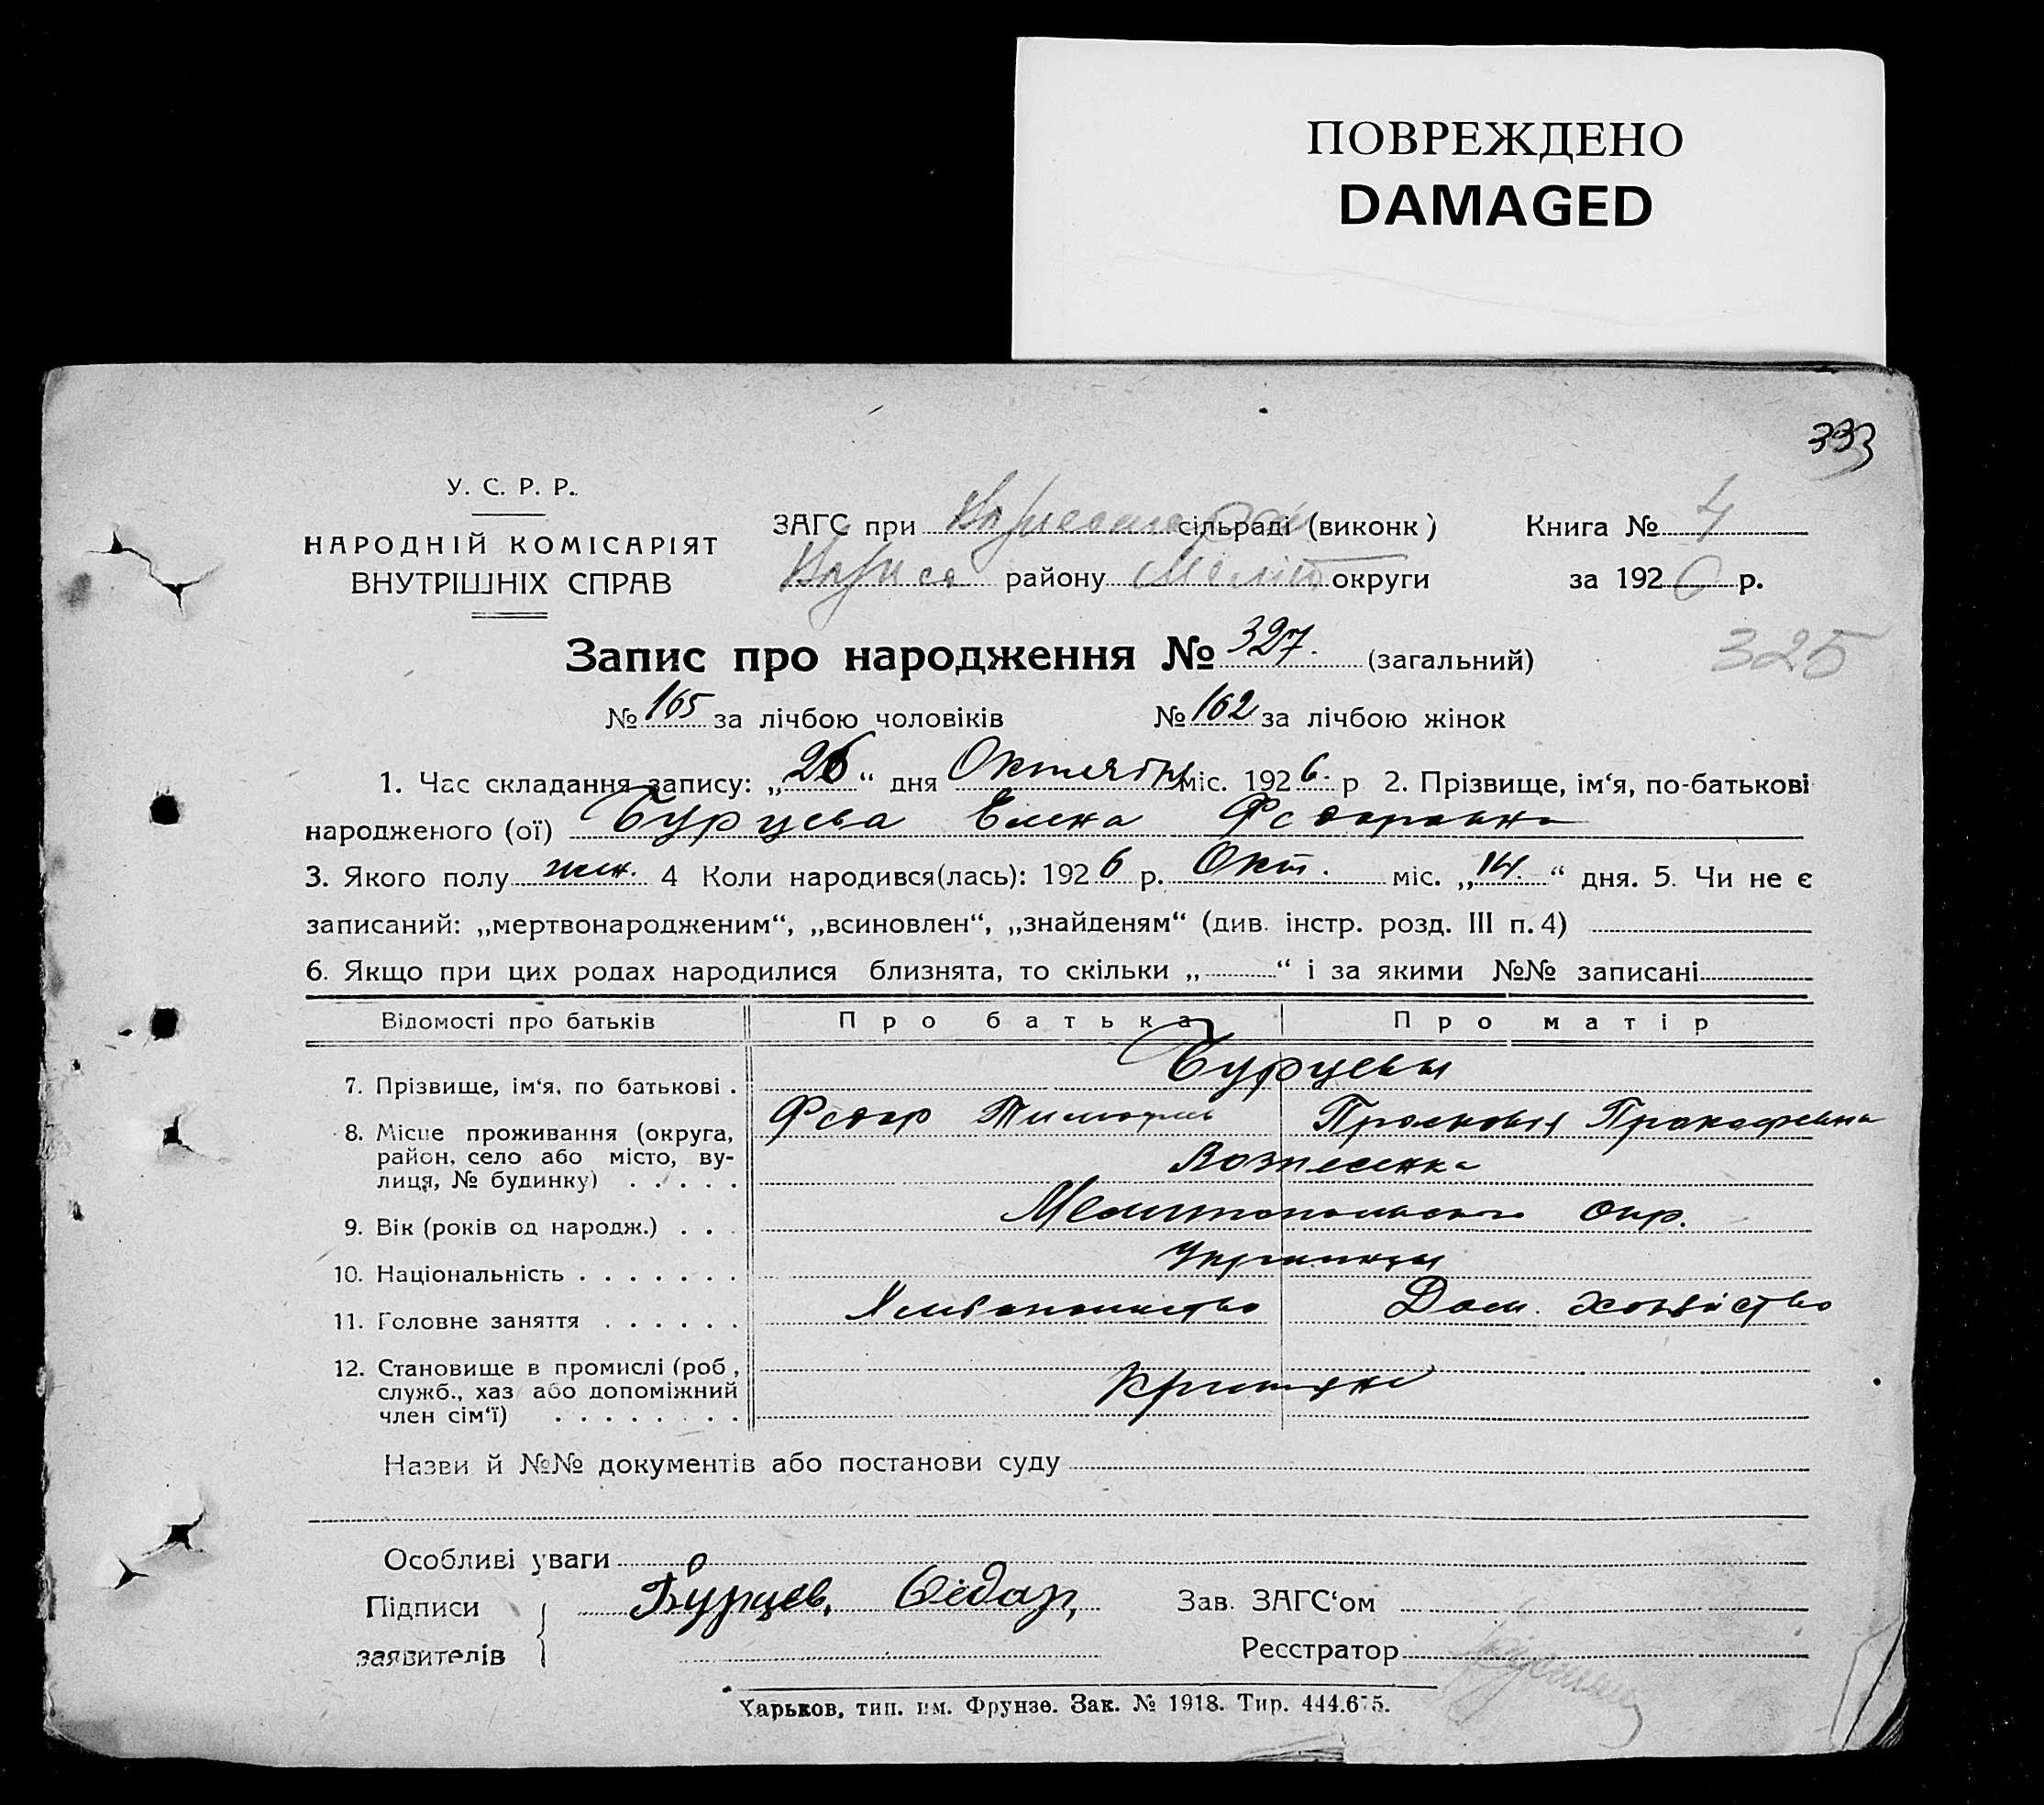 ПОВРЕЖДЕНО
DAMAGED
333
У. С. Р. Р.
НАРОДНІЙ КОМІСАРІЯТ
ВНУТРІШНІХ СПРАВ
ЗАГС при сільраді (виконк )
району Меліт округи
Книга № 4
за 1926 р.
Запис про народження № 327. (загальний)
325
№ 165 за лічбою чоловіків № 162 за лічбою жінок
1. Час складання запису: „26“ дня Октября міс. 1926. р 2. Прізвище, ім‘я, по-батькові
народженого (ої) Бурцева Елена Федоровна
3. Якого полу жен. 4 Коли народився(лась): 1926 р. Окт. міс. „14.“ дня. 5. Чи не є
записаний: „мертвонародженим“, „всиновлен“, „знайденям“ (див. інстр. розд. III п. 4)
6. Якщо при цих родах народилися близнята, то скільки „ “ і за якими №№ записані
Відомості про батьків Про батька Про матір
7. Прізвище, ім‘я, по батькові . Бурцевы
Федор Тимофее Просковія Прокофевна
8. Місце проживання (округа,
район, село або місто, ву-
лиця, № будинку) . . . . . Вознесенка
9. Вік (років од народж.) . . . Мелитопольского окр.
10. Національність . . . . . . . Украинцы
11. Головне заняття . . . . . . Хлебопашество Дом. хозяйство
12. Становище в промислі (роб ,
служб., хаз або допоміжний
член сім‘ї) . . . . . . . .
Назви й №№ документів або постанови суду
Особливі уваги
Підписи Бурцев, Федар, Зав. ЗАГС‘ом
заявителів Реєстратор
Харьков, тип. им. Фрунзе. Зак. № 1918. Тир. 444.675.